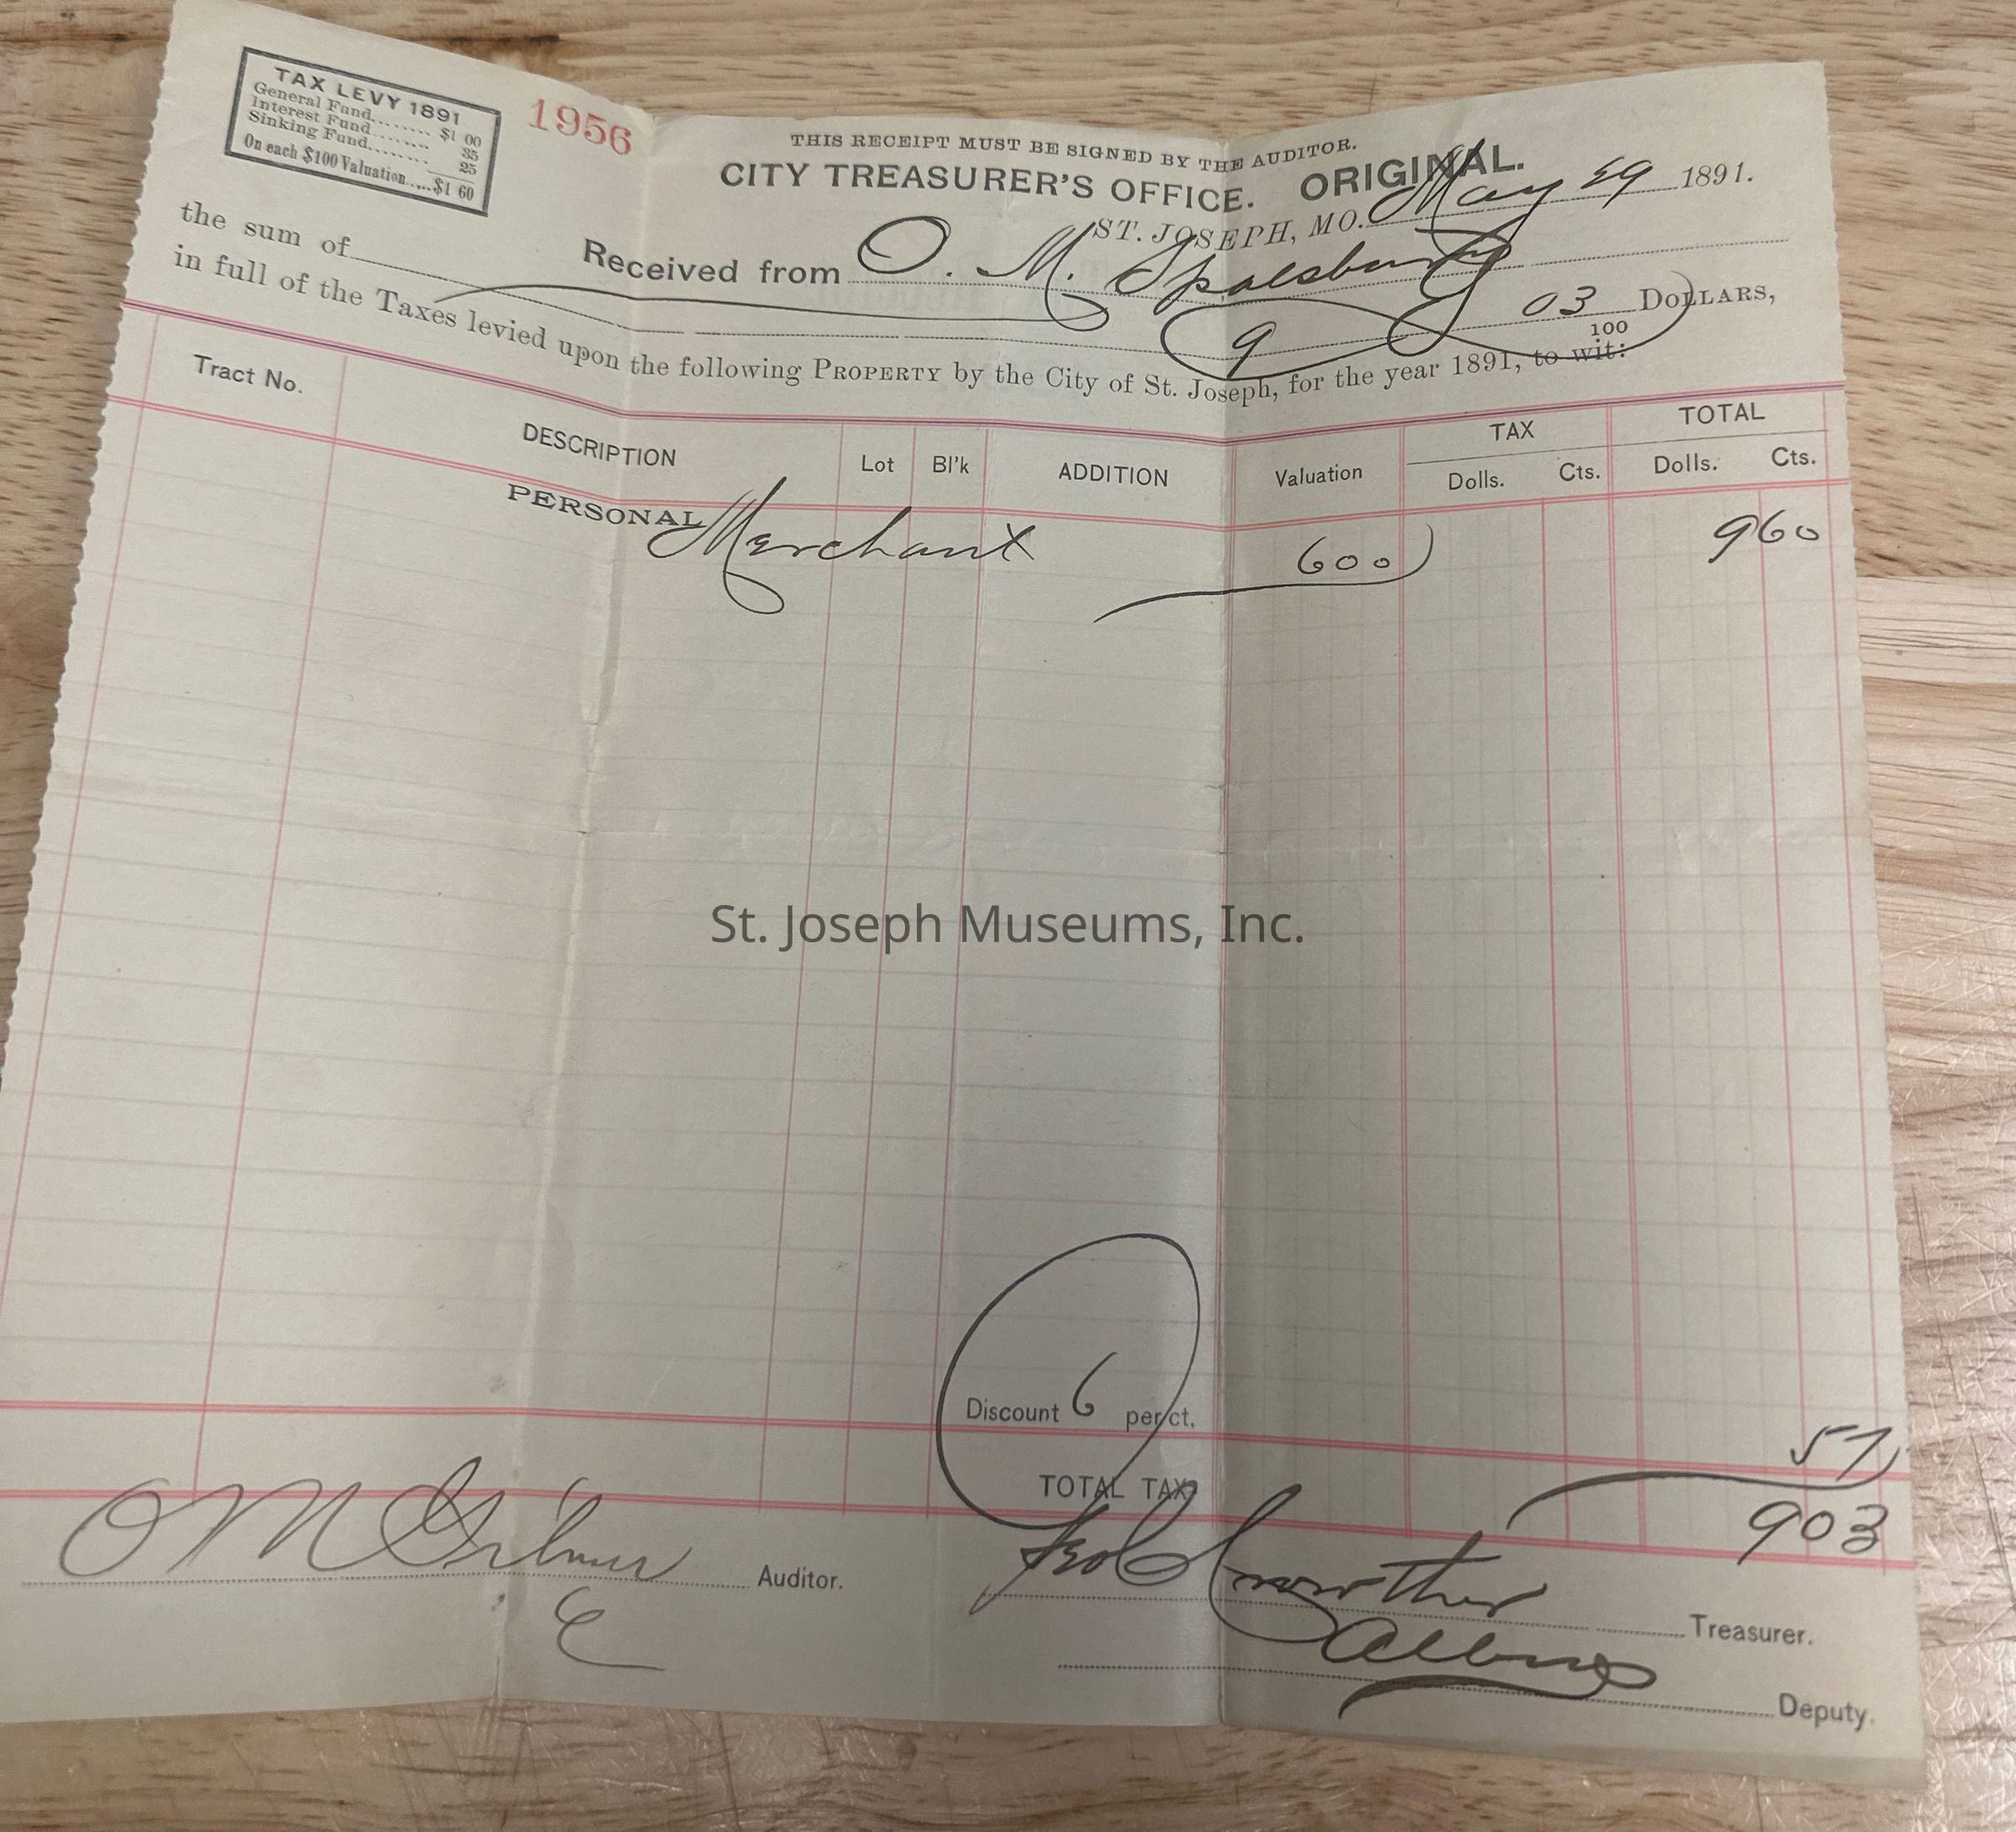 TAX LEVY 1891
General Fund........ $1 00
Interest Fund........ 35
Sinking Fund........ 25
On each $100 Valuation.....$1 60
1956
THIS RECEIPT MUST BE SIGNED BY THE AUDITOR.
CITY TREASURER'S OFFICE. ORIGINAL.
ST. JOSEPH, MO. May 29 1891.
Received from O. M. Spalsbury
the sum of 9 03/100 DOLLARS,
in full of the Taxes levied upon the following PROPERTY by the City of St. Joseph, for the year 1891, to wit:
Tract No. DESCRIPTION Lot Bl'k ADDITION Valuation TAX Dolls. Cts. TOTAL Dolls. Cts.
PERSONAL Merchant 600 960
St. Joseph Museums, Inc.
Discount 6 per ct. 57
TOTAL TAX 903
O M Gilmer Auditor.
E
Crowther Treasurer.
Deputy.